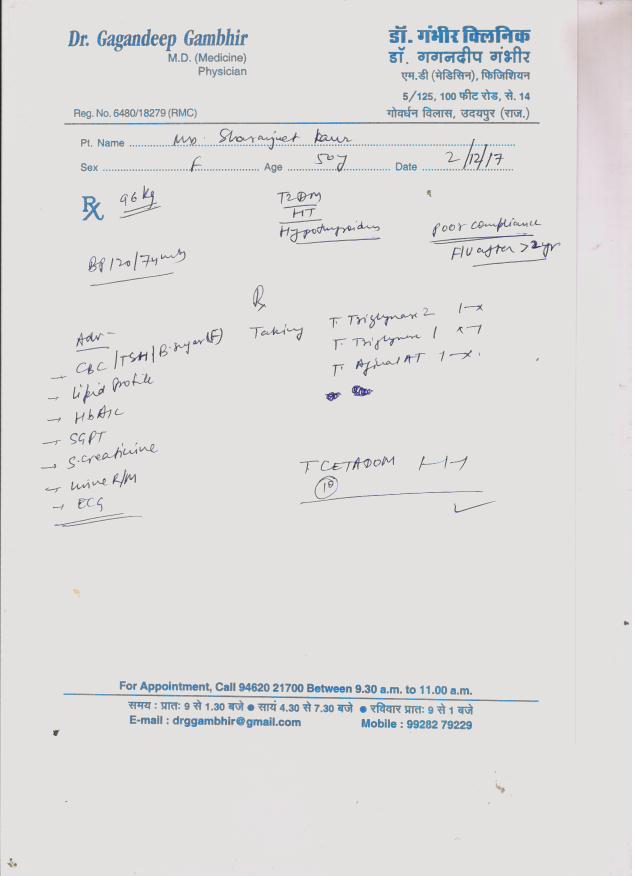 Dr. Gagandeep Gambhir
M.D. (Medicine)
Physician
Reg. No. 6480/18279 (RMC)
डॉ. गंभीर क्लिनिक
डॉ. गगनदीप गंभीर
एम.डी (मेडिसिन), फिजिशियन
5/125, 100 फीट रोड, से. 14
गोवर्धन विलास, उदयपुर (राज.)
Pt. Name Mrs. Sharanjeet Kaur
Sex F Age 50y Date 2/12/17
Rx 96 kg
T2DM
HT
Hypothyroidism
Poor compliance
F/U after >2yr
BP 120/74
Rx
Adv -
→ CBC / TSH / B. sugar (F)
→ Lipid Profile
→ HbA1c
→ SGPT
→ S. creatinine
→ Urine R/M
→ ECG
Taking T. Triglynase 2 1-x
T. Triglynase 1 x-1
T. AT 1-x.
T CETADOM 1-1-1
10
For Appointment, Call 94620 21700 Between 9.30 a.m. to 11.00 a.m.
समय : प्रातः 9 से 1.30 बजे ● सायं 4.30 से 7.30 बजे ● रविवार प्रातः 9 से 1 बजे
E-mail : drggambhir@gmail.com Mobile : 99282 79229